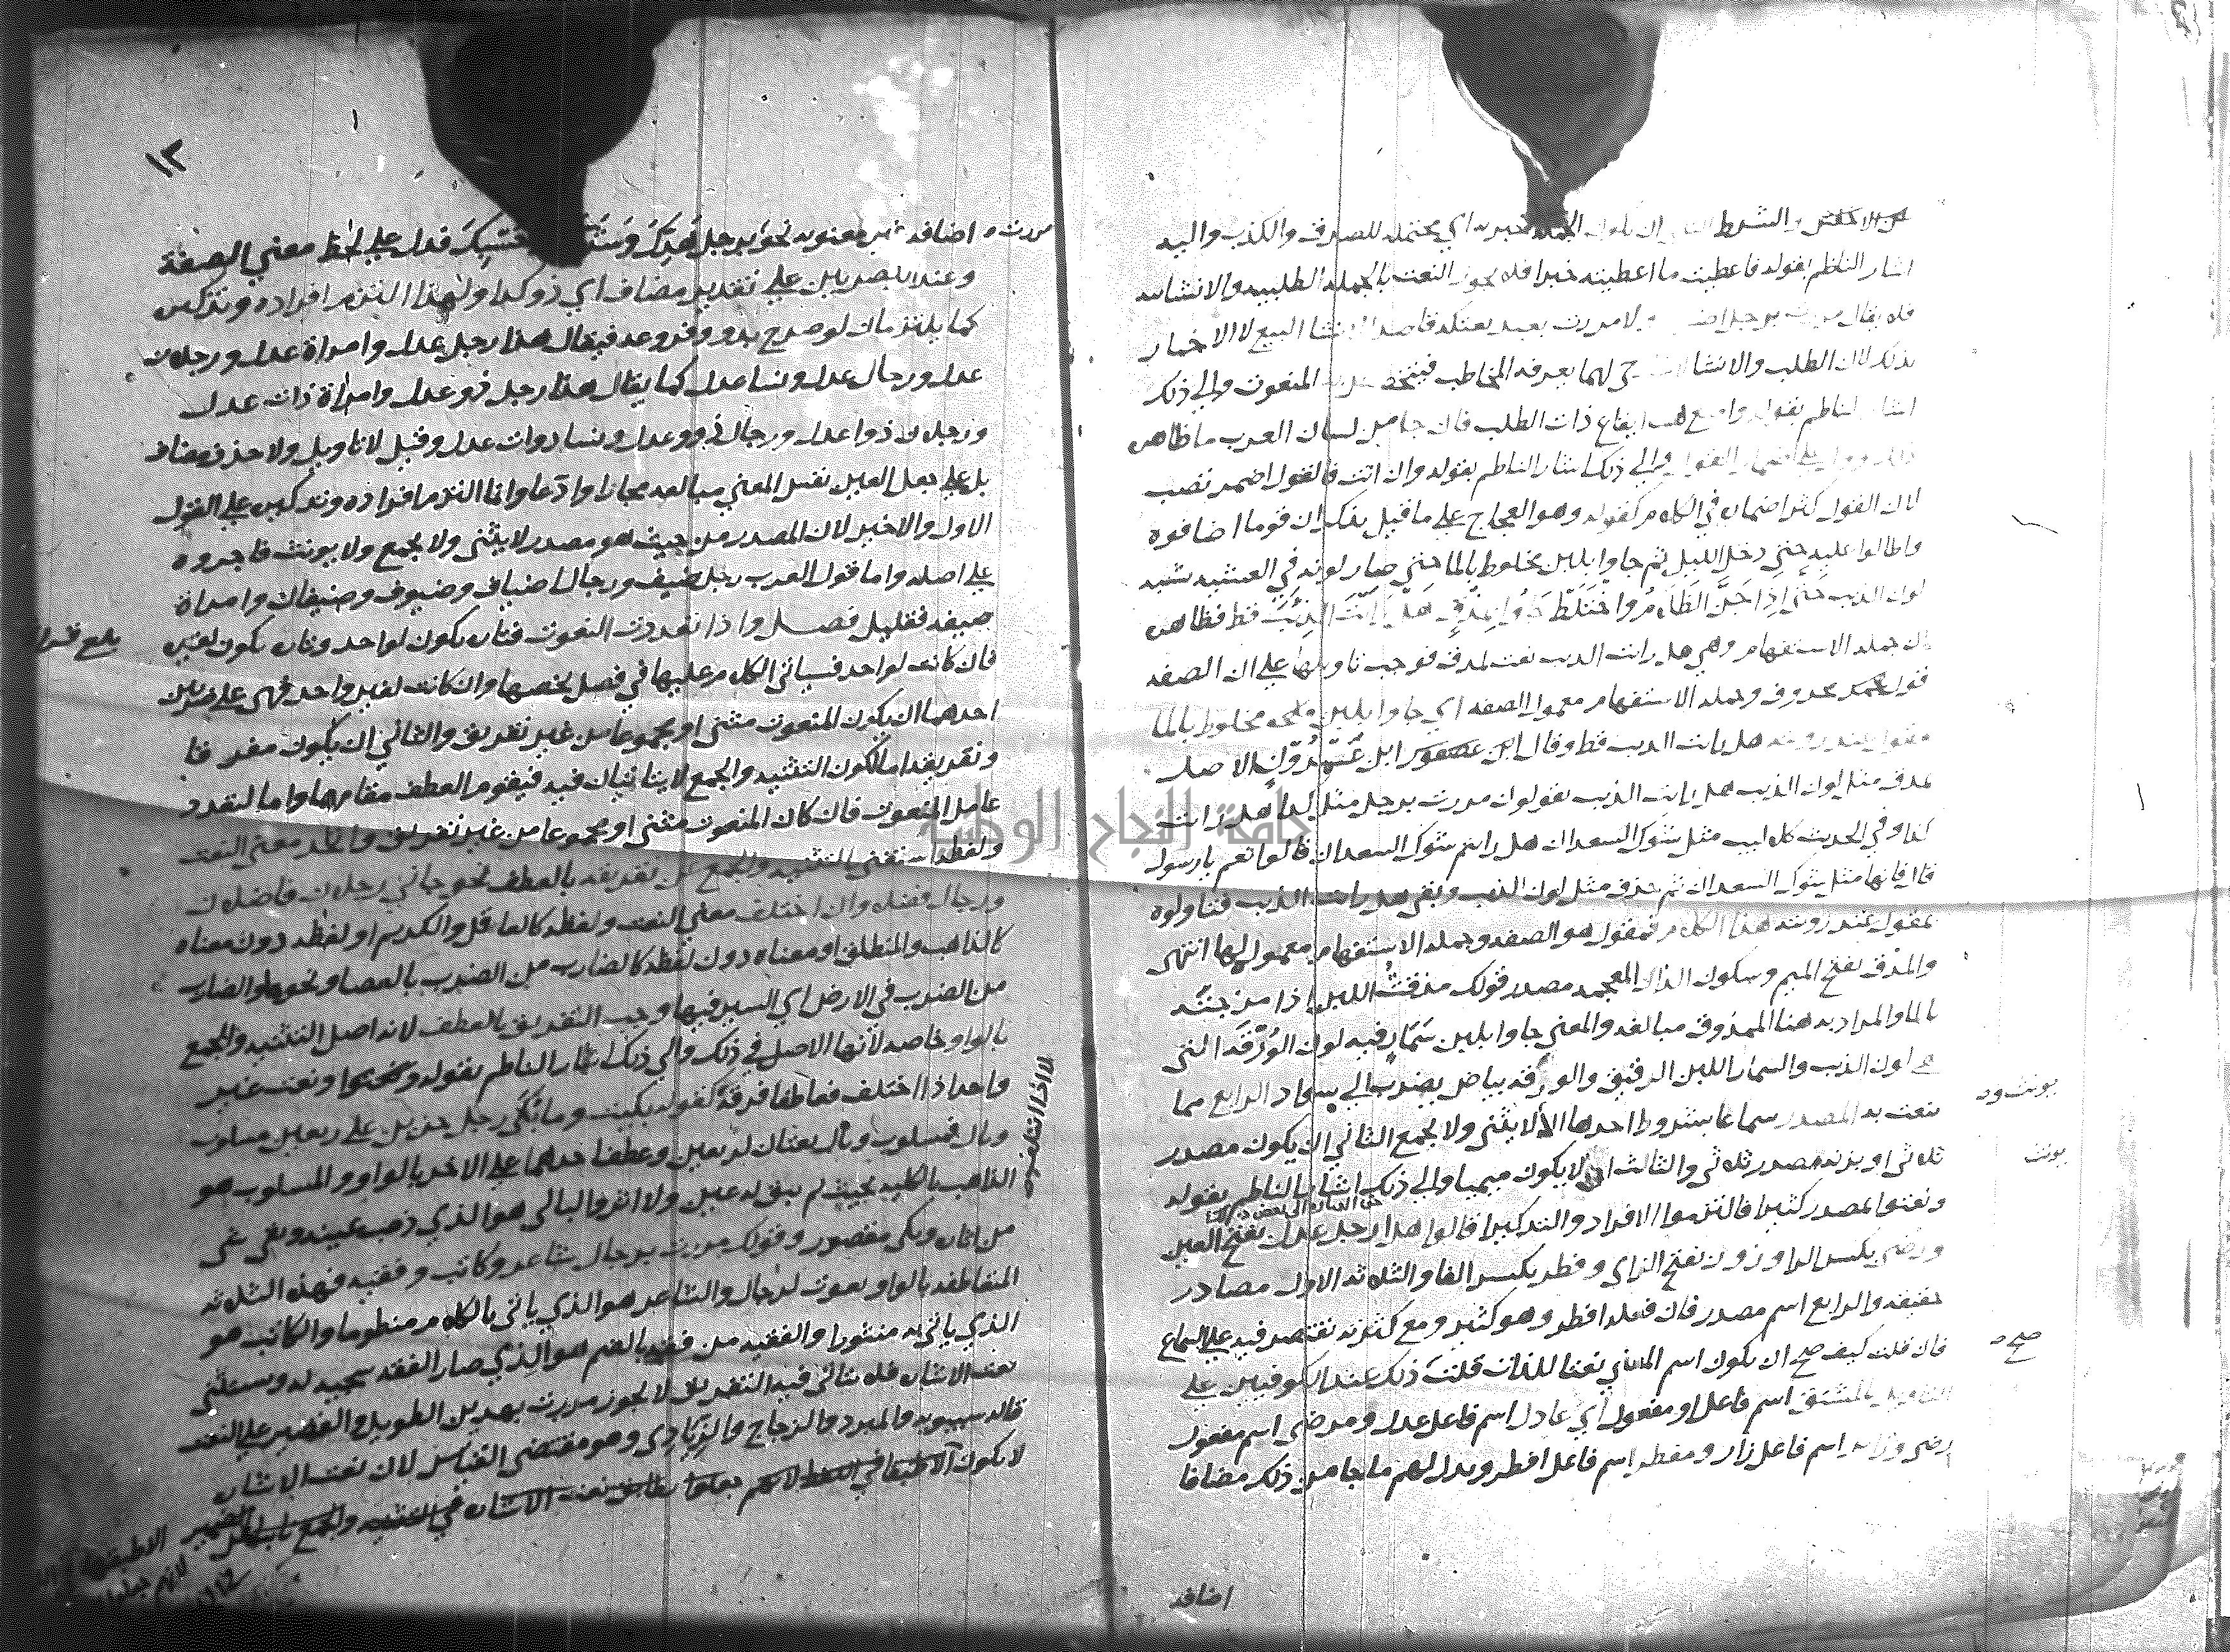 من الاخفش والشرط الثاني ان تكون الجملة خبرية اي يحتمله للصدق والكذب واليه
اشار الناظم بقوله فاعطيت ما اعطيته خبرا فلا يجوز النعت بالجملة الطلبيه والانشاييه
فلا يقال مررت برجل ولا مررت بعبد بعتكه قاصدا لانشا البيع لا الاخبار
بذلك لان الطلب والانشا لهما يعرفه المخاطب المنعوت والي ذلك
اشار الناظم بقوله وامنع هنا ايقاع ذات الطلب فان جا من لسان العرب ما ظاهره
ذلك اضمار القول والي ذلك اشار الناظم بقوله وان اتت فالقول اضمر تصب
لان القول كثر اضماره في الكلام كقوله وهو العجاج علي ما قيل يذكر ان قوما اضافوه
واطالوا عليه حتي دخل الليل ثم جاوا بلبن مخلوط بالما حتي صار لونه في العشيه شبيه
لون الذيب حَتَّى اِذَا جَنَّ الظَّلَامُ وا خْتَلَطْ جَاوُا بِمَذْقٍ هَلْ رَاَيْتَ الذِّئْبَ قط فظاهره
ان جملة الاستفهام وهي هل رايت الذيب نعت لمذق فوجب تاويلها علي ان الصفه
قول محذوف وجملة الاستفهام معمول الصفه اي جاوا بلبن مخلوط بالما
مقول عند رويته هل رايت الذيب قط وقال ابن عمرون الاصل
بمذق مثل لون الذيب هل رايت الذيب يقولون مررت برجل مثل كذا هل رايت
كذا وفي الحديث كلاليب مثل شوك السعدان هل رايتم شوك السعدان قالوا نعم يا رسول
قال فانها مثل شوك السعدان ثم حذف مثل لون الذيب وبقي هل رايت الذيب فتاولوه
بمقول عند رويته هذا الكلام فمقول هو الصفه وجملة الاستفهام معمول لها انتهى
والمذق بفتح الميم وسكون الذال المعجمه مصدر قولك مذقت اللبن اذا مزجته
بالما والمراد به هنا الممذوق مبالغه والمعني جاوا بلبن سَمَارٍ فيه لون الوُرْقَه التي
هي لون الذيب والسمار اللبن الرقيق والورقه بياض يضرب الي سواد الرابع مما
ينعت به المصدر سماعا بشروط احدها ان لا يثنى ولا يجمع الثاني ان يكون مصدر
ثلاثي او بزنة مصدر ثلاثي والثالث ان لا يكون ميميا والي ذلك اشار الناظم بقوله
ونعتوا بمصدر كثيرا فالتزموا الافراد والتذكيرا قالوا هذا رجل عدل بفتح العين
ورضي بكسر الرا وزور بفتح الزاي وفطر بكسر الفا والثلاثه الاول مصادر
حقيقه والرابع اسم مصدر فان فعله افطر وهو كثير ومع كثرته يقتصر فيه علي السماع
فان قلت كيف صح ان يكون اسم المعاني نعتا للذات قلت ذلك عند الكوفيين علي
التاويل بالمشتق اسم فاعل او مفعول اي عادل اسم فاعل عدل ومرضي اسم مفعول
رضي وزاير اسم فاعل زار ومفطر اسم فاعل افطر ويدل لهم ما جا من ذلك مضافا
يونث ود
يونث
صح
اضافه
١٢
مررت
اضافه نحو برجل هَدِّكَ قدل علي لحظ معني الصفة
وعند البصريين علي تقدير مضاف اي ذو كذا ولهذا التزم افراده وتذكيره
كما يلتزمان لو صرح بذو وفروعه فيقال هذا رجل عدل وامراة عدل ورجلان
عدل ورجال عدل ونسا عدل كما يقال هذا رجل ذو عدل وامراة ذات عدل
ورجلان ذوا عدل ورجال ذوو عدل ونسا ذوات عدل وقيل لا تاويل ولا حذف مضاف
بل علي جعل العين نفس المعني مبالغه مجازا وادعا وانما التزم افراده وتذكيره علي القول
الاول والاخير لان المصدر من حيث هو مصدر لا يثنى ولا يجمع ولا يونث فاجروه
علي اصله واما قول العرب رجل ضيف ورجال اضياف وضيوف وضيفان وامراة
ضيفه فقليل فصل واذا تعددت النعوت فتاره يكون لواحد وتاره يكون لغيره
بلغ
فان كانت لواحد فسياتي الكلام عليها في فصل يخصها وان كانت لغير واحد فهي على ضربين
احدهما ان يكون المنعوت مثنى او مجموعا من غير تفريق والثاني ان يكون مفرقا
وتفريقه اما لكون التثنيه والجمع لا يتاتيان فيه فيقوم العطف مقامهما واما لتعدد
عامل المنعوت فان كان المنعوت مثنى او مجموعا من غير تفريق واتحد معني النعت
ولفظه استغني بالتثنيه والجمع عن تفريقه بالعطف نحو جاني رجلان فاضلان
ورجال فضلا وان اختلف معني النعت ولفظه كالعاقل والكريم او لفظه دون معناه
كالذاهب والمنطلق او معناه دون لفظه كالضارب من الضرب بالعصا ونحوها والضارب
من الضرب في الارض اي السير فيها وجب التفريق بالعطف لانه اصل التثنيه والجمع
بالواو خاصه لانها الاصل في ذلك والي ذلك اشار الناظم بقوله ونعت غير
واحد اذا اختلف فعاطفا فرقه كقوله بكيت وما بُكَى رجل حزين علي ربعين مسلوب
لا اذا ائتلف
وبال فمسلوب وبال نعتان لربعين وعطف احدهما علي الاخر بالواو والمسلوب هو
الذاهب بالكليه بحيث لم يبق له عين ولا اثر والبالي هو الذي ذهب عينه وبقي شي
من اثاره وبكى مقصور وقولك مررت برجال شاعر وكاتب وفقيه فهذه الثلاثه
المتعاطفه بالواو نعوت لرجال والشاعر هو الذي ياتي بالكلام منظوما والكاتب هو
الذي ياتي به منثورا والفقيه من فقه بالضم هو الذي صار الفقه سجية له ويستثني
نعت الاشاره فلا يتاتى فيه التفريق لا يجوز مررت بهذين الطويل والقصير علي النعت
قاله سيبويه والمبرد والزجاج والزيادي وهو مقتضى القياس لان نعت الاشاره
لا يكون